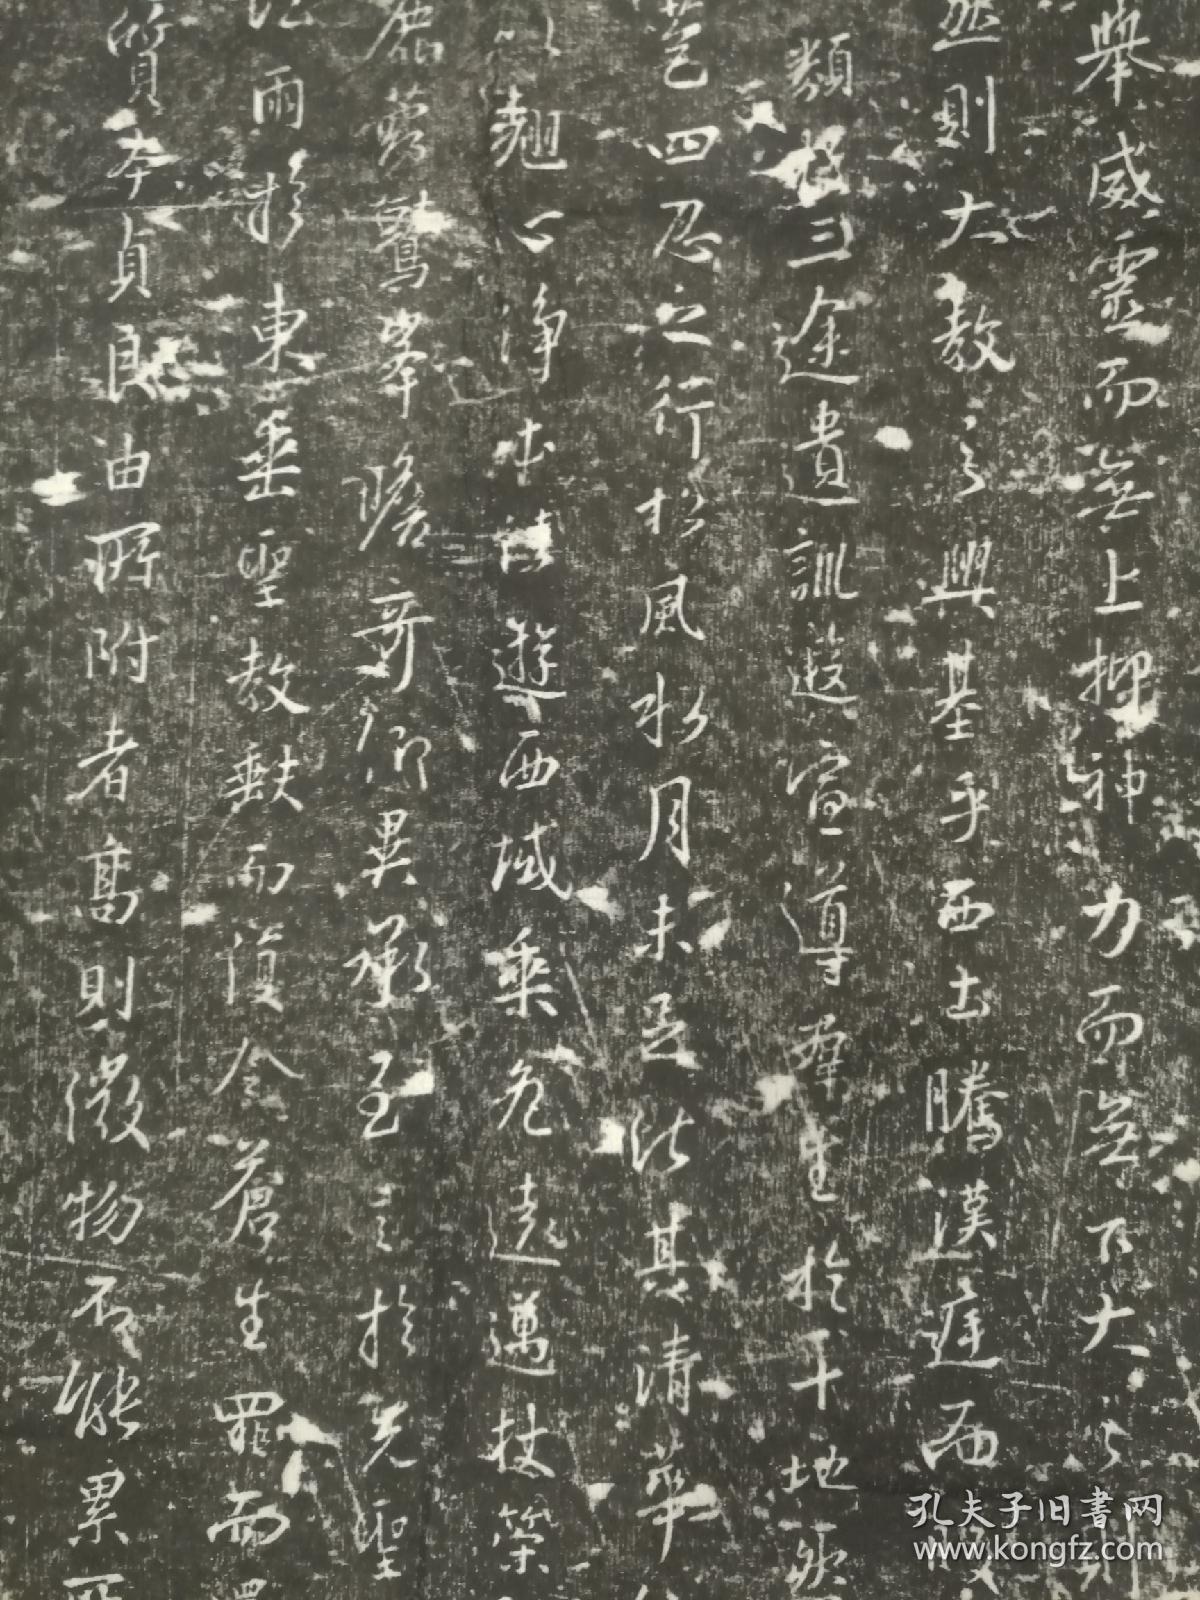 舉威靈而無上抑神力而無下大之則
然則大教之興基乎西土騰漢庭而皎
類於三途遺訓遐宣導群生於十地然
苞四忍之行松風水月未足比其清華
以翹心淨土法遊西域乘危遠邁杖策
鹿菀鷲峯瞻奇仰異承至言於先聖
法雨於東垂聖教缺而復全蒼生罪而還
質本貞良由所附者高則微物不能累而
孔夫子旧書网
www.kongfz.com